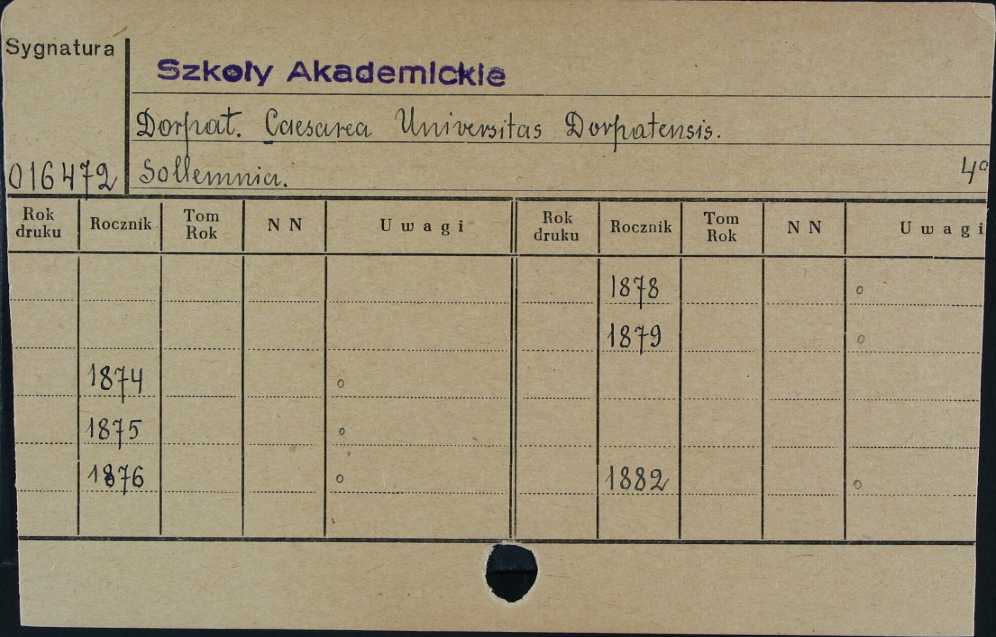 Sygnatura
Szkoły Akademickie
Dorpat. Caesarea Universitas Dorpatensis.
016472 Sollemnia. 4°
Rok druku Rocznik Tom Rok N N Uwagi Rok druku Rocznik Tom Rok N N Uwagi
1878 o
1879 o
1874 o
1875 o
1876 o 1882 o